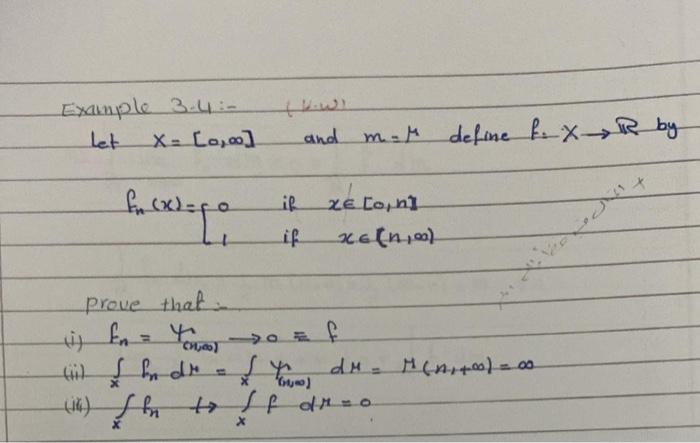 Example 3.4:- (H.W)
Let X = [0,∞] and m = μ define f: X → ℝ by
fₙ(x) = { 0 if x ∈ [0,n]
1 if x ∈ (n,∞)
prove that :-
(i) fₙ = ψ_(n,∞) → 0 ≡ f
(ii) ∫_X fₙ dμ = ∫_X ψ_(n,∞) dμ = μ(n,+∞) = ∞
(iii) ∫_X fₙ ↛ ∫_X f dμ = 0